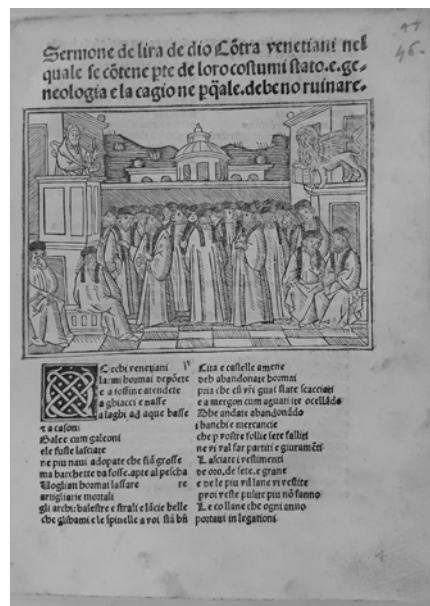 Sermone de lira de dio Cōtra venetiani nel
quale se cōtene pte de loro costumi stato.e.ge-
neologia e la cagio ne p q̄ale.debe no ruinare.
46
Cechi venetiani
larmi hormai depōete
e a fossine atendete
a ghiacci e nasse
a laghi ad aque basse
e a casoni
Galee cum galeoni
ele fuste lasciate
ne piu naui adopate che siā grosse
ma barchette da fosse.apte al pescha
Uoglian hormai lassare re
artigliarie mortali
gli archi:balestre e strali e lācie belle
che glibami e le spinelle a voi stā bn̄
Cita e castelle amene
deh abandonate hormai
pria che cū vr̄i guai siate scacciati
e a mergon cum aguati ite ocellādo
Dhe andate abandonādo
i banchi e mercancie
che p vostre follie sete falliti
ne vi val far partiti e giuramēti
Lasciate i vestimenti
de oro.de sete.e grane
e de le piu vil lane vi vestite
proi veste pulite piu nō fanno
Le collane che ogni anno
portaui in legationi